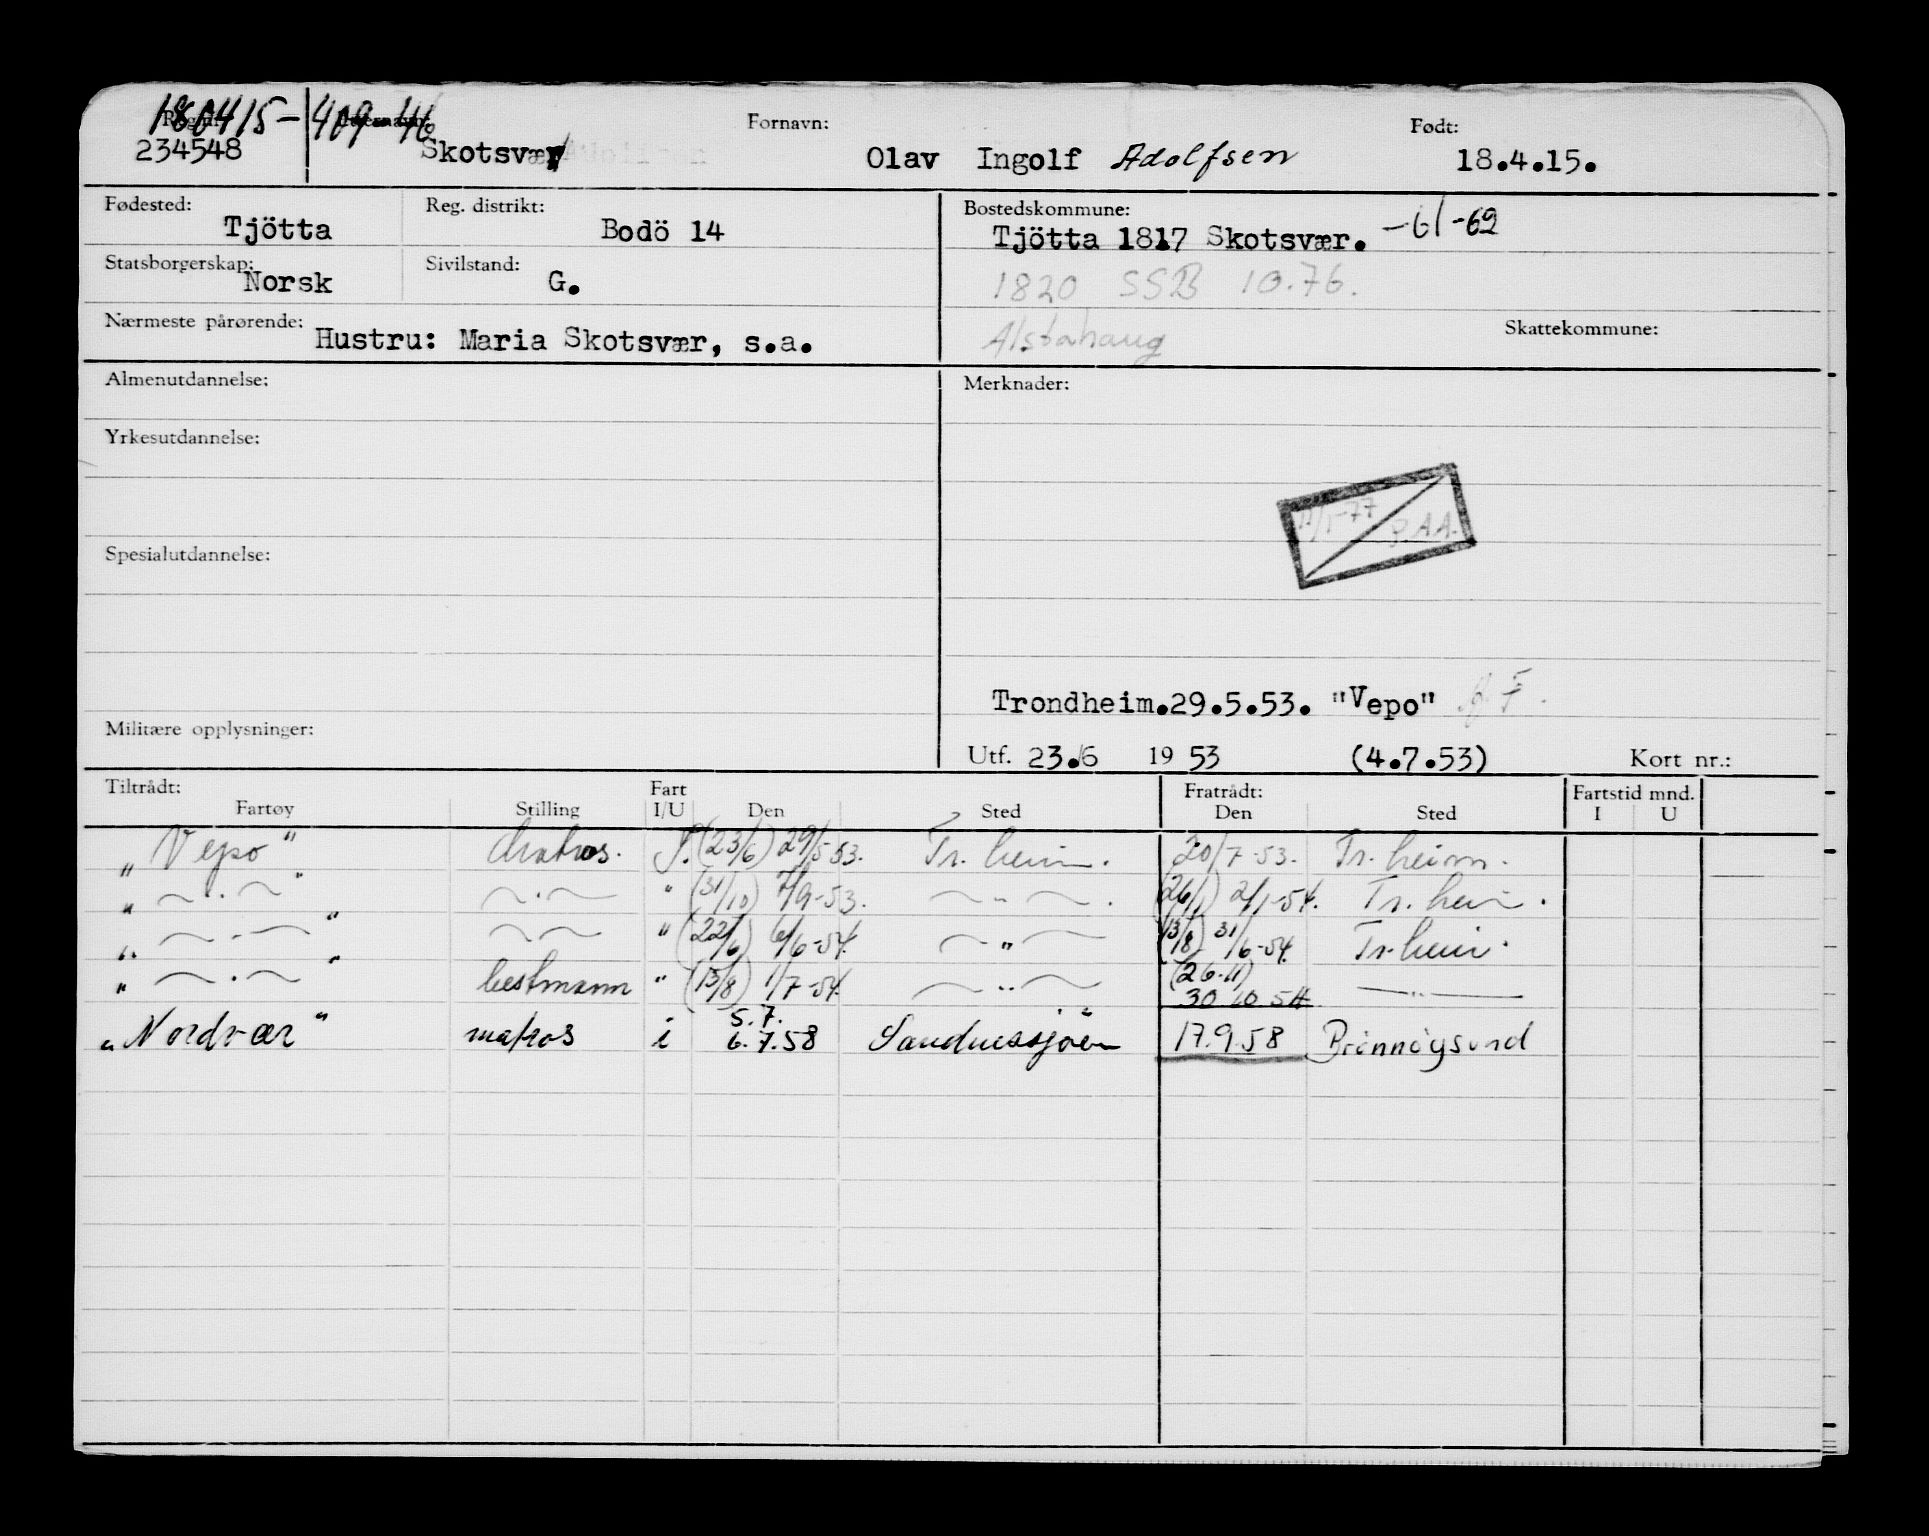 180415-409-46
Fornavn: Født:
234548 Skotsvær Olav Ingolf Adolfsen 18.4.15.
Fødested: Reg. distrikt: Bostedskommune:
Tjötta Bodö 14 Tjötta 1817 Skotsvær. -61-62
Statsborgerskap: Sivilstand:
Norsk G. 1820 SSB 10.76.
Nærmeste pårørende: Alstahaug Skattekommune:
Hustru: Maria Skotsvær, s.a.
Almenutdannelse: Merknader:
Yrkesutdannelse:
Spesialutdannelse:
Trondheim.29.5.53. "Vepo"
Militære opplysninger:
Utf. 23./6 1953 (4.7.53) Kort nr.:
Tiltrådt: Fart Fratrådt: Fartstid mnd.
Fartøy Stilling I/U Den Sted Den Sted I U
„ Vepo " (23/6) 29/5 53. Tr. heim. 20/7-53. Tr. heim.
„ ~ . ~ " ~ . ~ " (31/10) 7/9-53. ~ " ~ . (26/1) 2/1-54. Tr. heim.
„ ~ . ~ " ~ ~ " (22/6) 6/6-54. ~ " ~ (13/8) 31/6-54. Tr. heim.
„ ~ . ~ " bestmann " (13/8) 1/7-54. ~ " ~ (26-11) 30 10 54 — " —
„ Nordvær " matros i 5.7. 6.7.58 Sandnessjøen 17.9.58 Brønnøysund